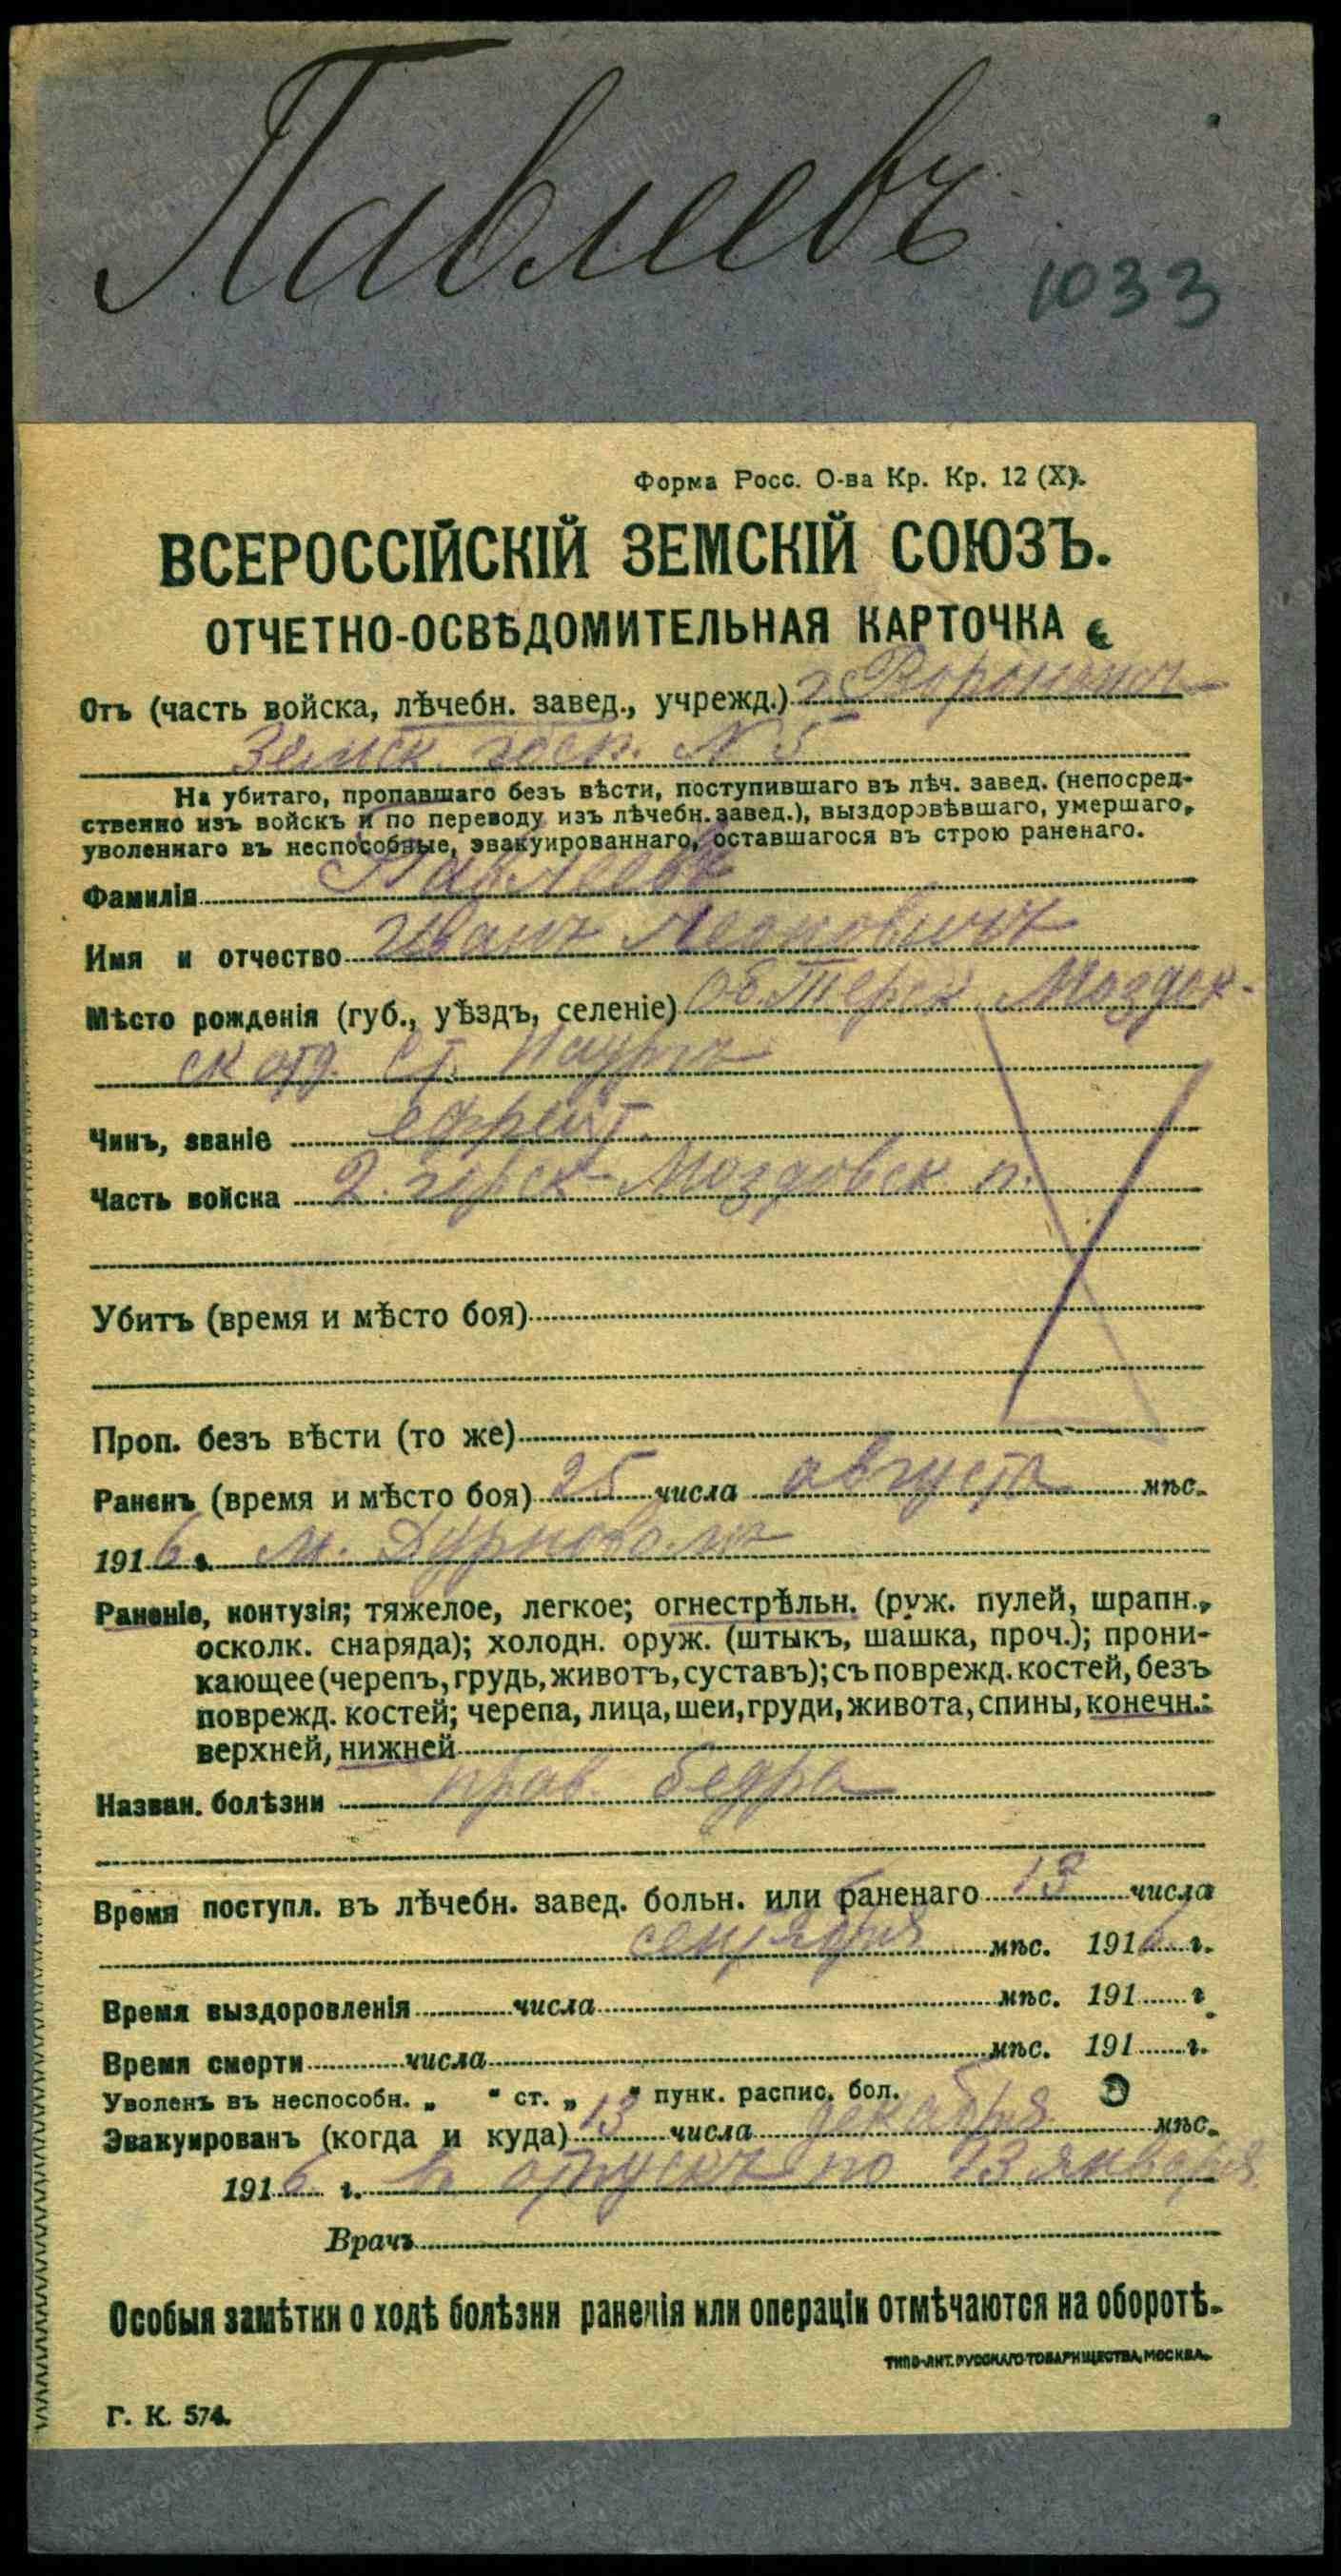 Павлеевъ
1033
Форма Росс. О-ва Кр. Кр. 12 (X).
ВСЕРОССІЙСКІЙ ЗЕМСКІЙ СОЮЗЪ.
ОТЧЕТНО-ОСВѢДОМИТЕЛЬНАЯ КАРТОЧКА
Отъ (часть войска, лѣчебн. завед., учрежд.)
Земск. госп. № 5
На убитаго, пропавшаго безъ вѣсти, поступившаго въ лѣч. завед. (непосред-
ственно изъ войскъ и по переводу изъ лѣчебн. завед.), выздоровѣвшаго, умершаго,
уволеннаго въ неспособные, эвакуированнаго, оставшагося въ строю раненаго.
Фамилія Павлеевъ
Имя и отчество Иванъ
Мѣсто рожденія (губ., уѣздъ, селеніе) об. Терск. Моздок-
ск отд. ст. Наурск
Чинъ, званіе ефрейт.
Часть войска 2 Моздовск п.
Убитъ (время и мѣсто боя)
Проп. безъ вѣсти (то же)
Раненъ (время и мѣсто боя) 25 числа августа мѣс.
1916 г. м.
Раненіе, контузія; тяжелое, легкое; огнестрѣльн. (руж. пулей, шрапн.,
осколк. снаряда); холодн. оруж. (штыкъ, шашка, проч.); прони-
кающее (черепъ, грудь, животъ, суставъ); съ поврежд. костей, безъ
поврежд. костей; черепа, лица, шеи, груди, живота, спины, конечн.:
верхней, нижней
Назван. болѣзни прав. бедра
Время поступл. въ лѣчебн. завед. больн. или раненаго 13 числа
сентября мѣс. 1916 г.
Время выздоровленія числа мѣс. 191 г.
Время смерти числа мѣс. 191 г.
Уволенъ въ неспособн. „ " ст. „ " пунк. распис. бол.
Эвакуированъ (когда и куда) 13 числа декабря мѣс.
1916 г. в отпускъ по 13 января
Врачъ
Особыя замѣтки о ходѣ болѣзни раненія или операціи отмѣчаются на оборотѣ.
ТИПО-ЛИТ. РУССКАГО ТОВАРИЩЕСТВА, МОСКВА.
Г. К. 574.